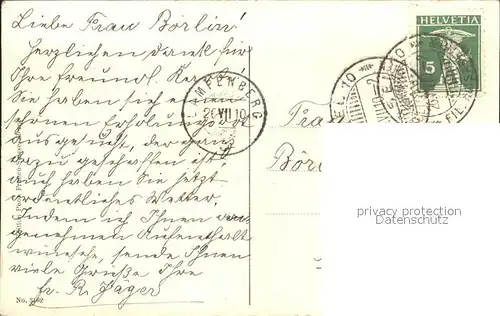 Liebe Frau Börlin!
Herzlichen dank für
Ihre freundl. Karte!
Sie haben sich einen
schönen Erholungsort
ausgesucht, der ganz
dazu geschaffen ist,
auch haben Sie jetzt
ordentliches Wetter.
Indem ich Ihnen an-
genehmen Aufenthalt
wünsche, sende Ihnen
viele Grüße Ihre
fr. R. Jäger
No. 7102
HELVETIA
5
26 VII 10
Frau
Börlin
privacy protection
Datenschutz